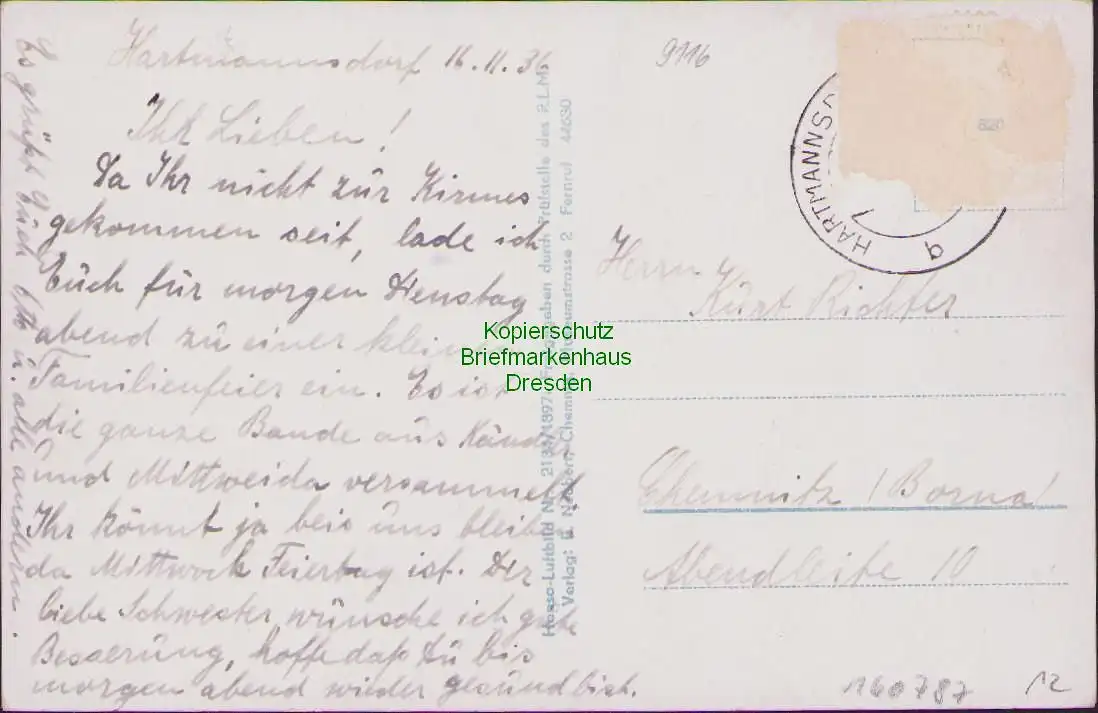 Hartmannsdorf 16.11.36
Ihr Lieben!
Da Ihr nicht zur Kirmes
gekommen seit, lade ich
Euch für morgen Dienstag
abend zu einer kleinen
Familienfeier ein. Es ist
die ganze Bande aus Kändler
und Mittweida versammelt
Ihr könnt ja beis uns bleiben
da Mittwoch Feiertag ist. Der
liebe Schwester wünsche ich gute
Besserung, hoffe daß Du bis
morgen abend wieder gesund bist.
Es grüßt Euch Otto u. alle andern.
Hansa-Luftbild Nr. Freigegeben durch Prüfstelle des R.L.M.
Verlag: Chemnitz 2 Fernruf 44630
9116
HARTMANNSD
q
7
820
Herrn
Kurt Richter
Chemnitz / Borna
Abendleite 10
160787
12
Kopierschutz
Briefmarkenhaus
Dresden